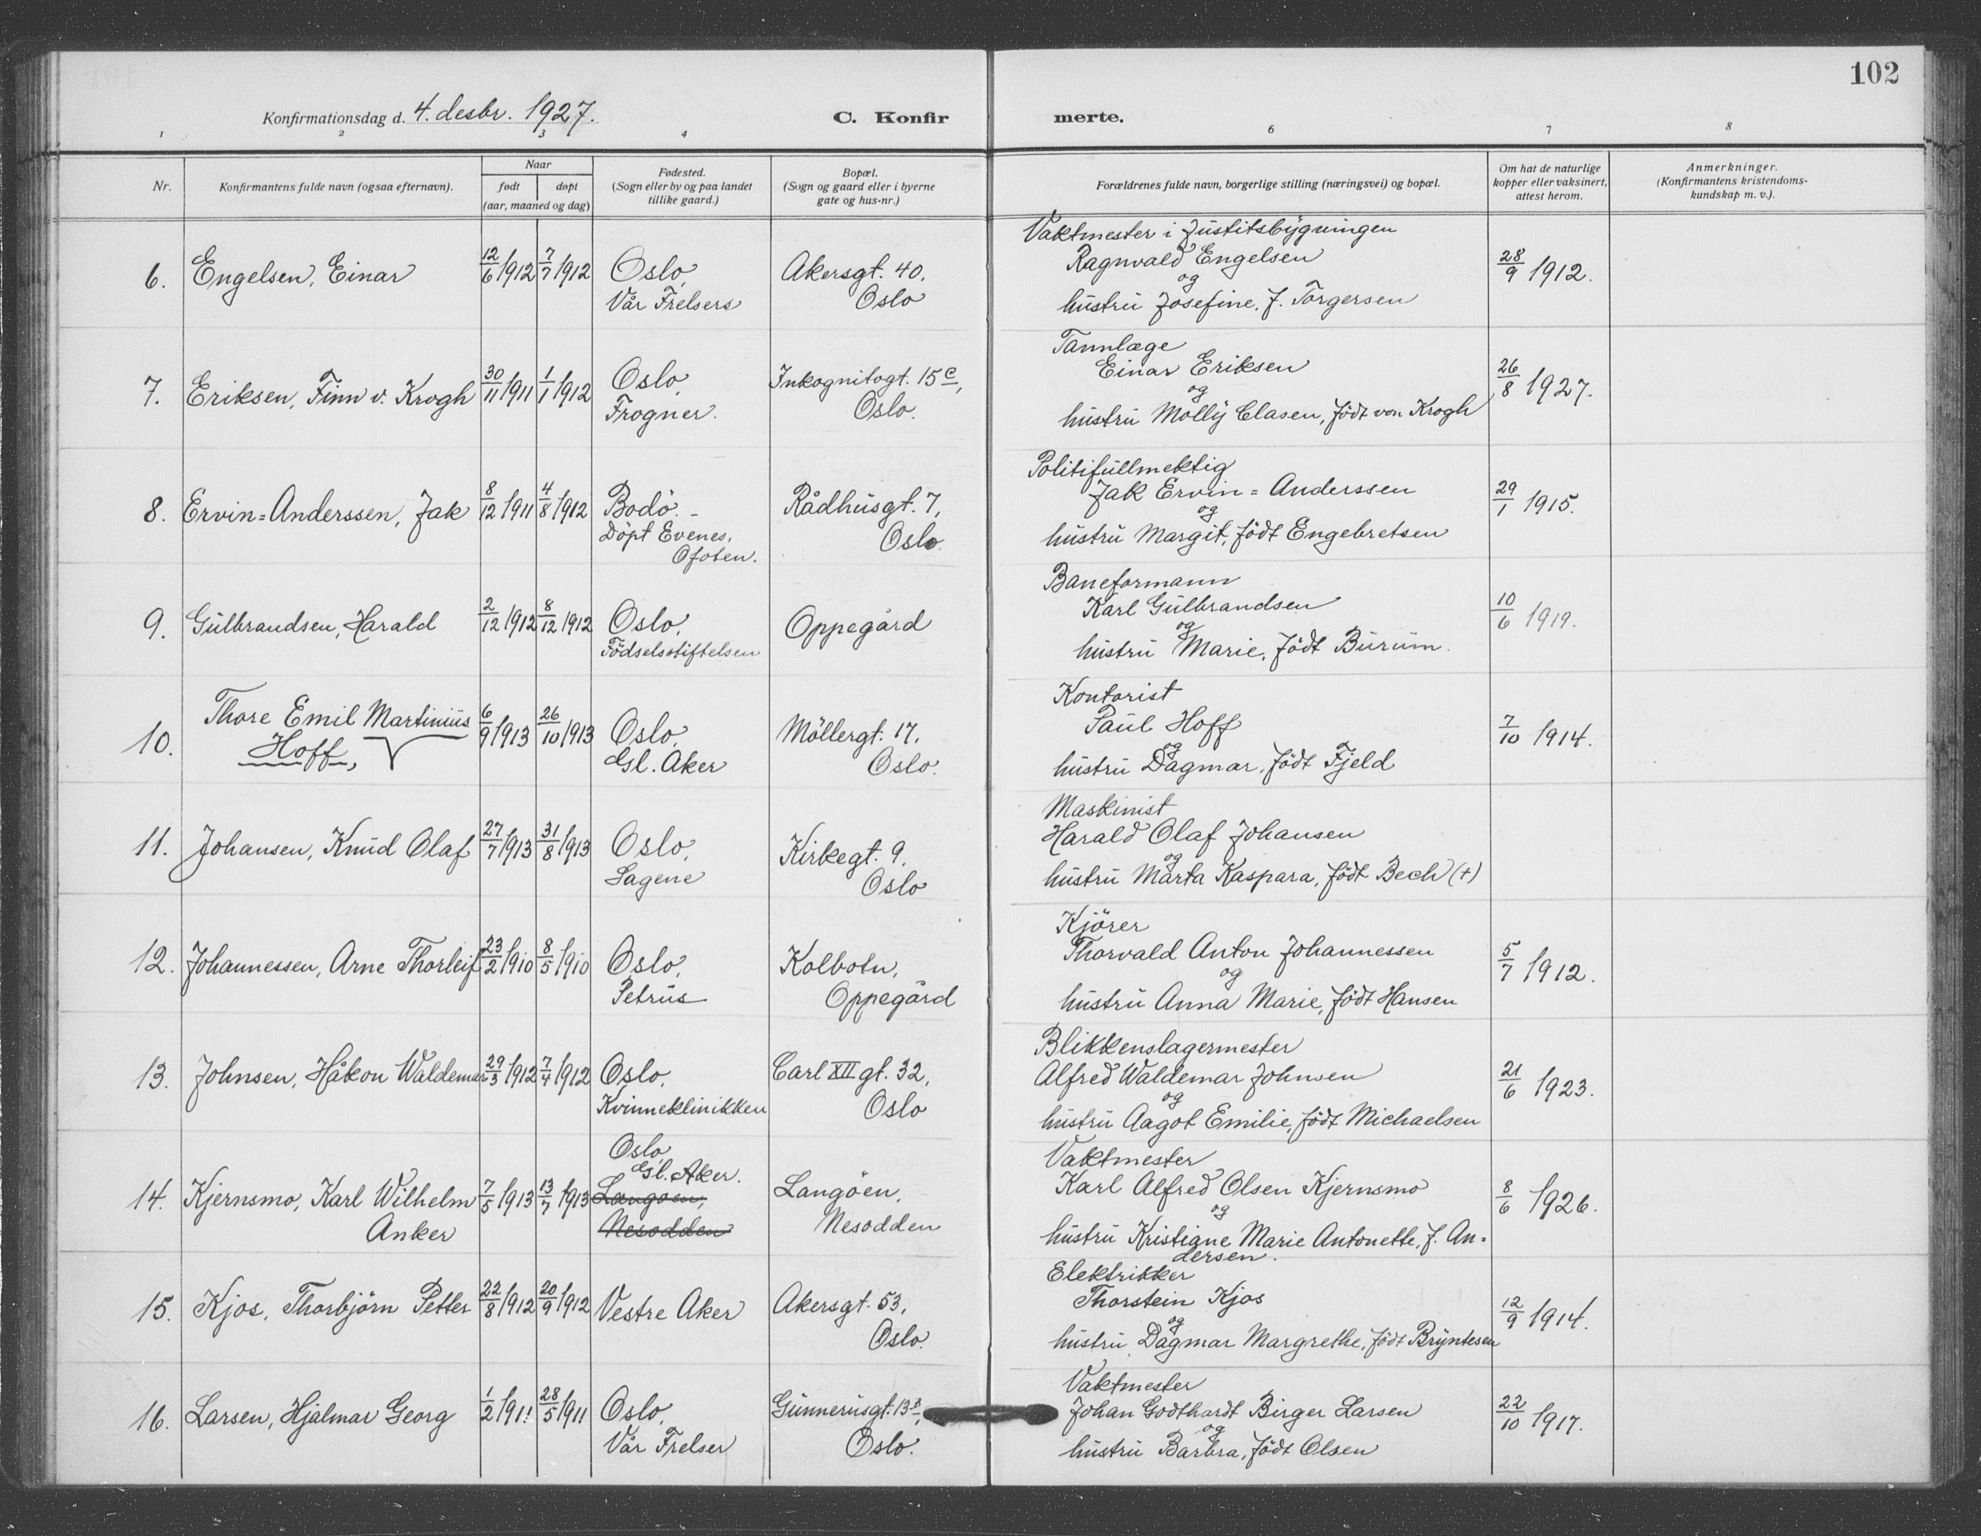 102
Konfirmationsdag d. 4. desbr. 1927.
C. Konfir
merte.
1 2 3 4 6 7 8
Nr.
Konfirmantens fulde navn (ogsaa efternavn).
Naar
født
døpt
(aar, maaned og dag)
Fødested.
(Sogn eller by og paa landet
tillike gaard.)
Bopæl.
(Sogn og gaard eller i byerne
gate og hus-nr.)
Forældrenes fulde navn, borgerlige stilling (næringsvei) og bopæl.
Om hat de naturlige
kopper eller vaksinert,
attest herom.
Anmerkninger.
(Konfirmantens kristendoms-
kundskap m. v.).
6. Engelsen, Einar 12/6 1912 7/7 1912 Oslo, Akersgt. 40,
Vår Frelsers Oslo
Vaktmester i Justitsbygningen
Ragnvald Engelsen
og
hustru Josefine, f. Torgersen
28/9 1912.
7. Eriksen, Finn v. Krogh 30/11 1911 1/1 1912 Oslo, Inkognitogt. 15 c,
Frogner. Oslo.
Tannlæge
Einar Eriksen
og
hustru Molly Clasen, født von Krogh
26/8 1927.
8. Ervin=Anderssen, Jak 8/12 1911 4/8 1912 Bodö. - Rådhusgt. 7,
Döpt Evenes, Oslo.
Ofoten.
Politifullmektig
Jak Ervin=Anderssen
og
hustru Margit, födt Engebretsen
29/1 1915.
9. Gulbrandsen, Harald 2/12 1912 8/12 1912 Oslo, Oppegård
Födselsstiftelsen
Baneformann
Karl Gulbrandsen
og
hustru Marie, födt Burum.
10/6 1919.
10. Thore Emil Martinius 6/9 1913 26/10 1913 Oslo, Möllergt. 17,
Hoff, Gl. Aker Oslo.
Kontorist
Paul Hoff
og
hustru Dagmar, födt Fjeld
7/10 1914.
11. Johansen, Knud Olaf 27/7 1913 31/8 1913 Oslo, Kirkegt. 9,
Sagene Oslo
Maskinist
Harald Olaf Johansen
og
hustru Marta Kaspara, födt Bech (+)
12. Johannessen, Arne Thorleif 23/2 1910 8/5 1910 Oslo, Kolbotn,
Petrus Oppegård
Kjörer
Thorvald Anton Johannessen
og
hustru Anna Marie, födt Hansen
5/7 1912.
13. Johnsen, Håkon Waldemar 29/3 1912 7/4 1912 Oslo, Carl XII gt. 32,
Kvinneklinikken Oslo
Blikkenslagermester
Alfred Waldemar Johnsen
og
hustru Aagot Emilie, födt Michaelsen
21/6 1923.
Oslo,
Gl. Aker.
14. Kjernsmo, Karl Wilhelm 7/5 1913 13/7 1913 Langöen, Langöen,
Anker Nesodden Nesodden
Vaktmester
Karl Alfred Olsen Kjernsmo
og
hustru Kristiane Marie Antonette, f. An=
dersen.
8/6 1926.
15. Kjos, Thorbjörn Petter 22/8 1912 20/9 1912 Vestre Aker Akersgt. 53,
Oslo.
Elektrikker
Thorstein Kjos
og
hustru Dagmar Margrethe, födt Bryntesen
12/9 1914.
16. Larsen, Hjalmar Georg 1/2 1911 28/5 1911 Oslo, Gunnerusgt. 13
Vår Frelser Oslo.
Vaktmester
Johan Godthardt Birger Larsen
og
hustru Barbra, födt Olsen
22/10 1917.